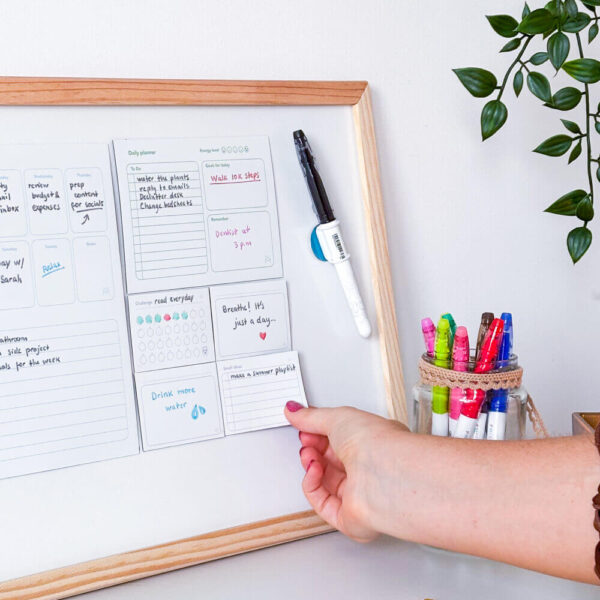 review
budget &
expenses
prep
content
for socials
inbox
day w/
Sarah
Relax
side project
for the week
Daily planner
Energy level
To Do
water the plants
reply to emails
Declutter desk
Change bedsheets
Goal for today
Walk 10k steps
Remember
Dentist at
3 p.m
Challenge read everyday
Breathe! It's
just a day...
Drink more
water
make a summer playlist